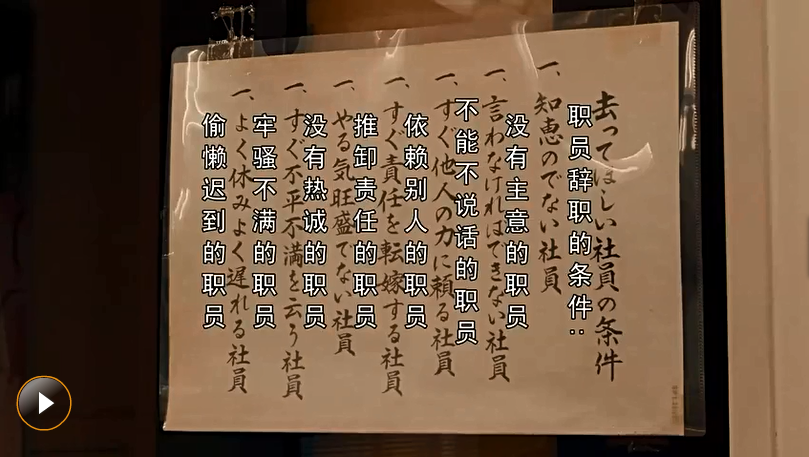 去ってほしい社員の条件
職员辞职的条件：
一、知恵のでない社員
没有主意的职员
一、言わなければできない社員
不能不说话的职员
一、すぐ他人の力に頼る社員
依赖别人的职员
一、すぐ責任を転嫁する社員
推卸责任的职员
一、やる気旺盛でない社員
没有热诚的职员
一、すぐ不平不満を云う社員
牢骚不满的职员
一、よく休みよく遅れる社員
偷懒迟到的职员